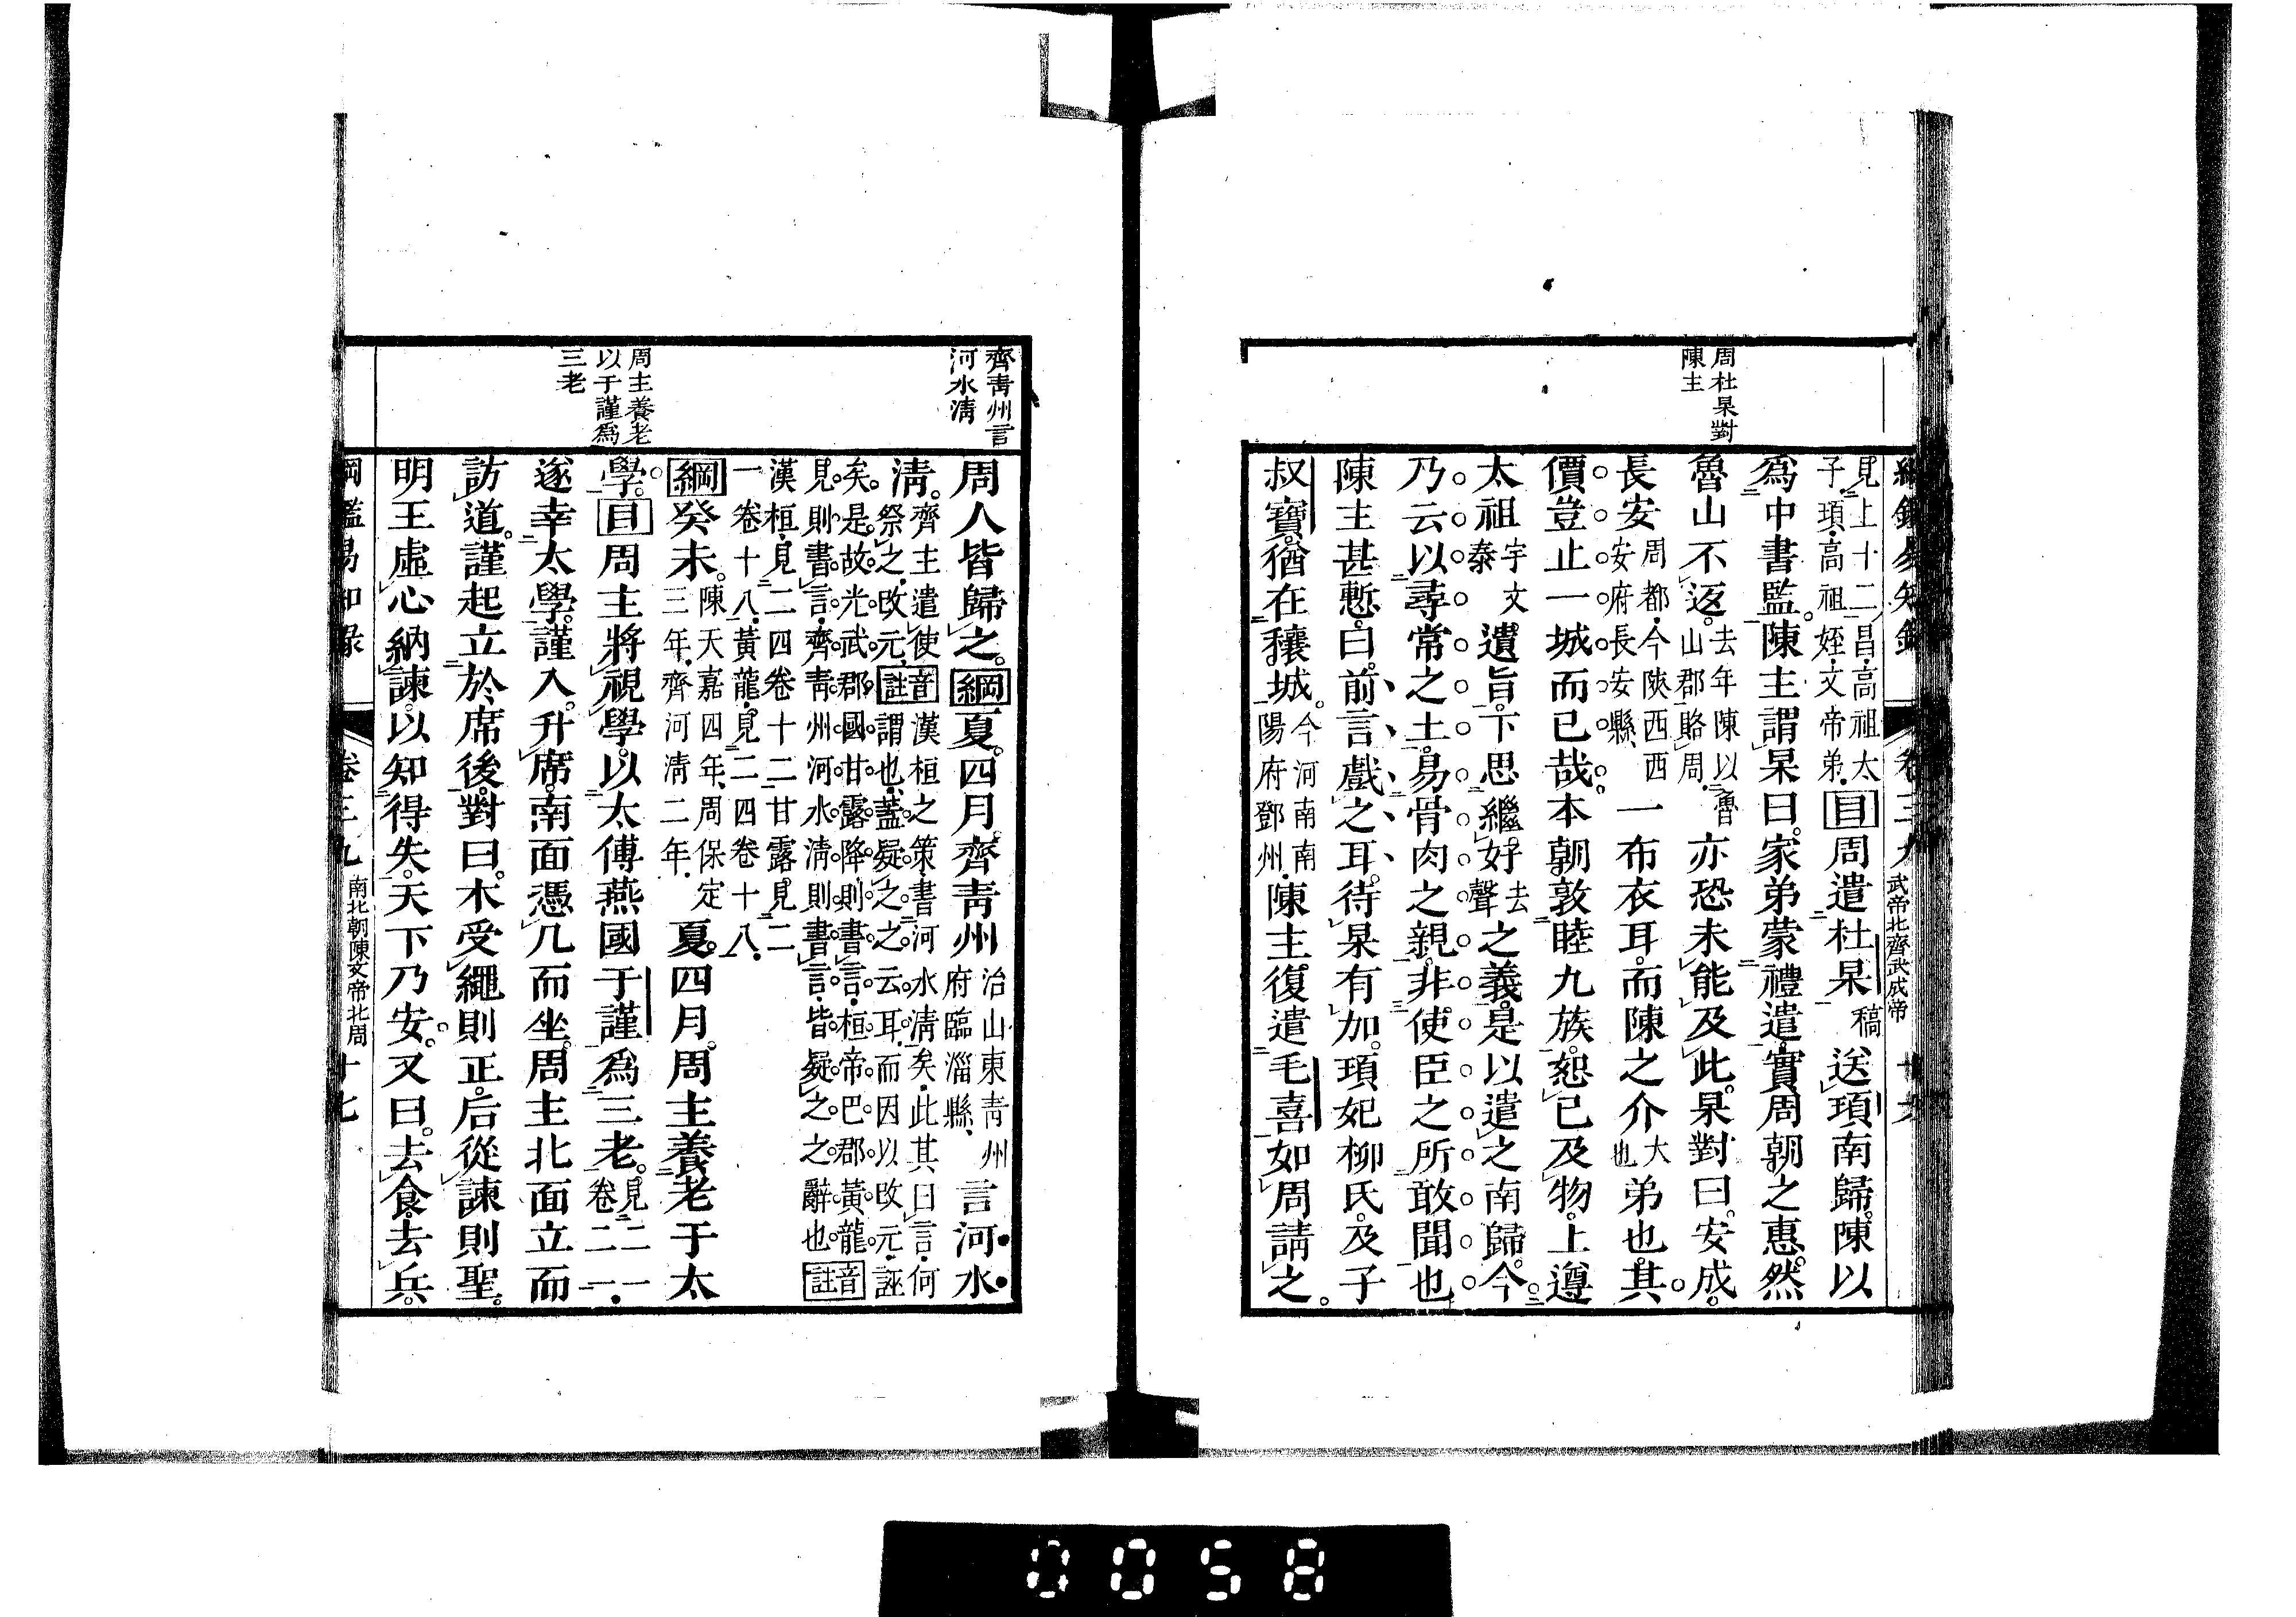 周杜杲對
陳主
綱鑑易知錄 卷三九 武帝北齊武成帝
見上十二昌高祖太
子頊高祖姪文帝弟目周遣杜杲稿送頊南歸陳以
爲中書監陳主謂杲曰家弟蒙禮遣實周朝之惠然
魯山不返去年陳以魯山郡賂周亦恐未能及此杲對曰安成
長安周都今陝西西安府長安縣一布衣耳而陳之介大也弟也其
價豈止一城而已哉本朝敦睦九族恕已及物上遵
太祖宇文泰遺旨下思繼好去聲之義是以遣之南歸今
乃云以尋常之土易骨肉之親非使臣之所敢聞也
陳主甚慙曰前言戲之耳待杲有加頊妃柳氏及子
叔寶猶在穰城今河南南陽府鄧州陳主復遣毛喜如周請之
齊靑州言
河水淸
周主養老
以于謹爲
三老
周人皆歸之綱夏四月齊靑州治山東靑州府臨淄縣言河水
淸齊主遣使祭之改元音註漢桓之策書河水淸矣此其曰言何謂也蓋疑之之云耳而因以改元誣
矣是故光武郡國甘露降則書言桓帝巴郡黃龍見則書言齊靑州河水淸則書言皆疑之之辭也音註
漢桓見二四卷十二甘露見二一卷十八黃龍見二四卷十八
綱癸未陳天嘉四年周保定三年齊河淸二年夏四月周主養老于太
學目周主將視學以太傅燕國于謹爲三老見二一卷二一
遂幸太學謹入升席南面憑几而坐周主北面立而
訪道謹起立於席後對曰木受繩則正后從諫則聖
明王虛心納諫以知得失天下乃安又曰去食去兵
綱鑑易知錄 卷三九 南北朝陳文帝北周 十七
0058